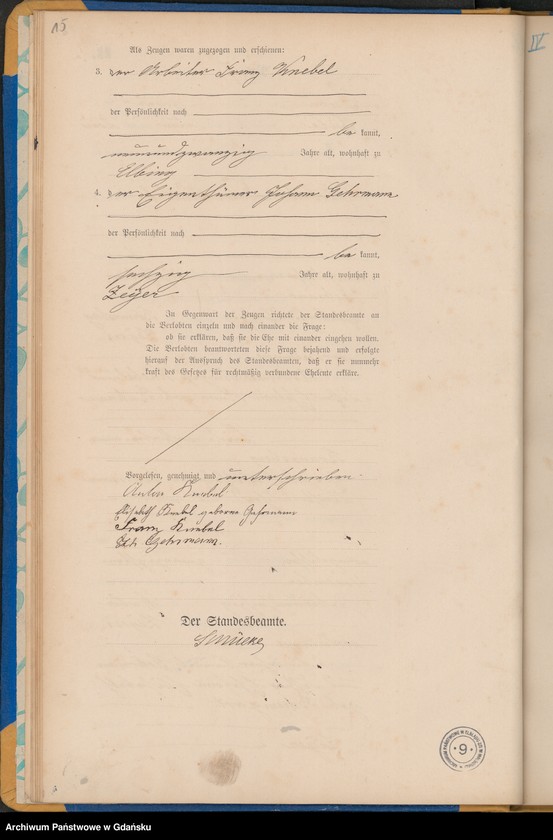 15
IV
Als Zeugen waren zugezogen und erschienen:
3. der Arbeiter Franz Knebel
der Persönlichkeit nach
be kannt,
neunundzwanzig Jahre alt, wohnhaft zu
Elbing
4. der Eigenthümer Johann Gehrmann
der Persönlichkeit nach
be kannt,
sechzig Jahre alt, wohnhaft zu
Zeyer
In Gegenwart der Zeugen richtete der Standesbeamte an
die Verlobten einzeln und nach einander die Frage:
ob sie erklären, daß sie die Ehe mit einander eingehen wollen.
Die Verlobten beantworteten diese Frage bejahend und erfolgte
hierauf der Ausspruch des Standesbeamten, daß er sie nunmehr
kraft des Gesetzes für rechtmäßig verbundene Eheleute erkläre.
Vorgelesen, genehmigt und unterschrieben
Knebel
Elisabeth Knebel geborene Gehrmann
Franz Knebel
Gehrmann.
Der Standesbeamte.
9
Archiwum Państwowe w Gdańsku